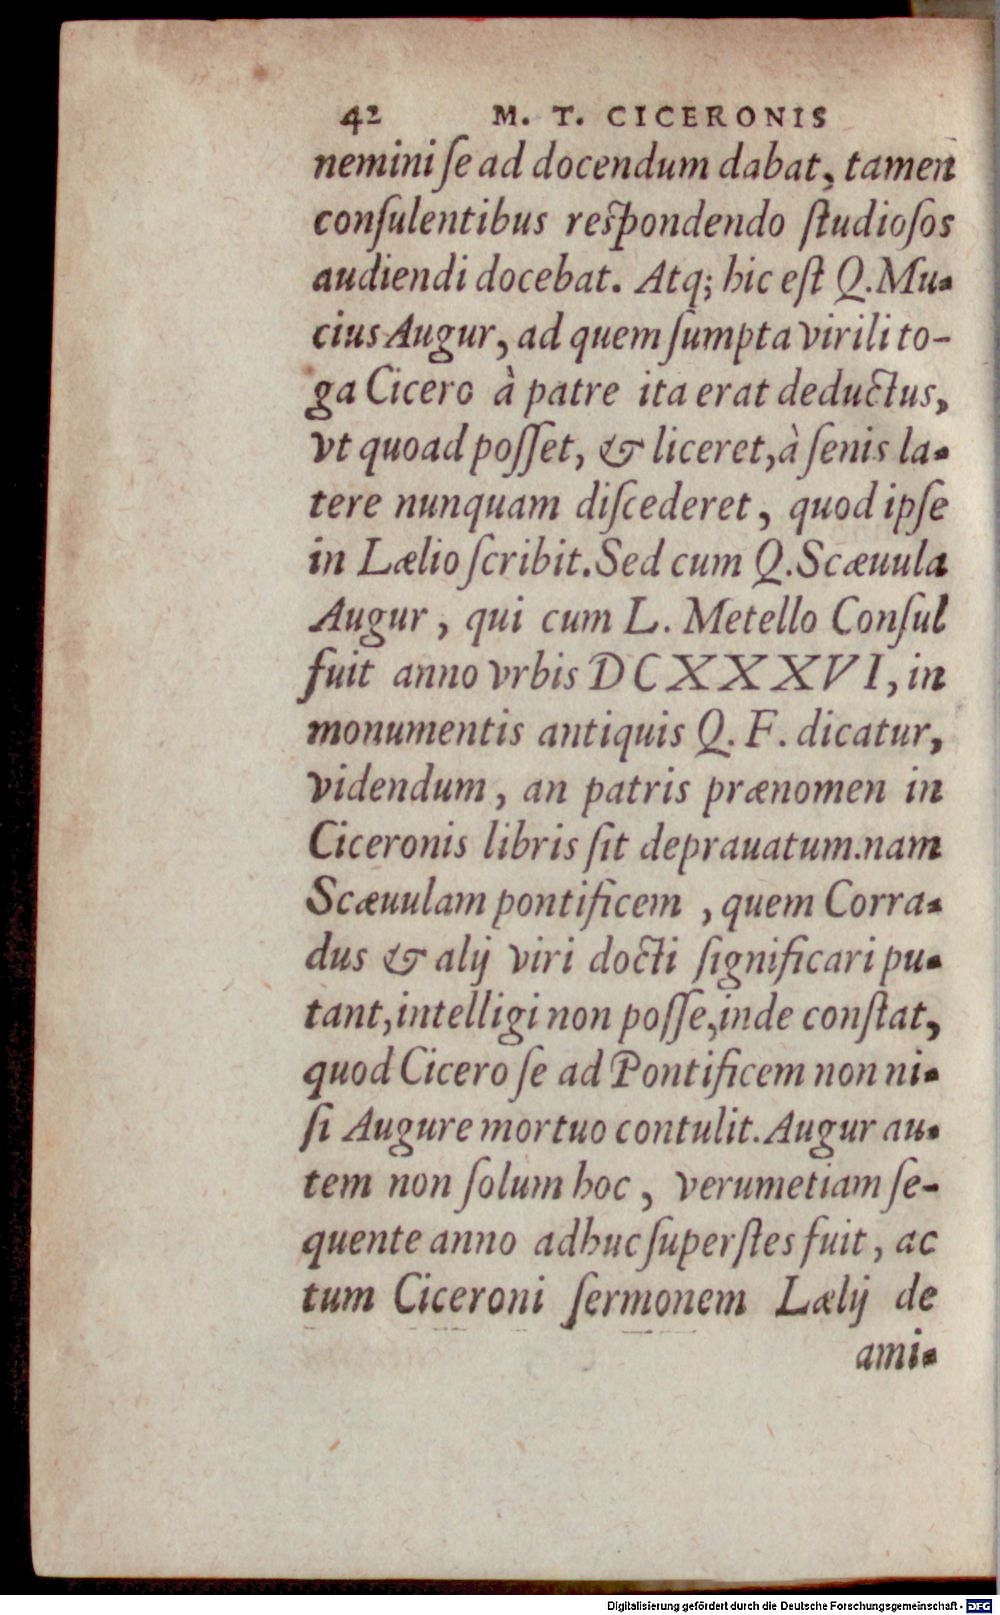 42 M. T. CICERONIS
nemini ſe ad docendum dabat, tamen
conſulentibus reſpondendo ſtudioſos
audiendi docebat. Atq; hic eſt Q. Mu-
cius Augur, ad quem ſumpta virili to-
ga Cicero à patre ita erat deductus,
vt quoad poſſet, & liceret, à ſenis la-
tere nunquam diſcederet, quod ipſe
in Lælio ſcribit. Sed cum Q. Scæuula
Augur, qui cum L. Metello Conſul
fuit anno vrbis DCXXXVI, in
monumentis antiquis Q. F. dicatur,
videndum, an patris prænomen in
Ciceronis libris ſit deprauatum. nam
Scæuulam pontificem, quem Corra-
dus & alij viri docti ſignificari pu-
tant, intelligi non poſſe, inde conſtat,
quod Cicero ſe ad Pontificem non ni-
ſi Augure mortuo contulit. Augur au-
tem non ſolum hoc, verumetiam ſe-
quente anno adhuc ſuperſtes fuit, ac
tum Ciceroni ſermonem Lælij de
ami-
Digitalisierung gefördert durch die Deutsche Forschungsgemeinschaft - DFG